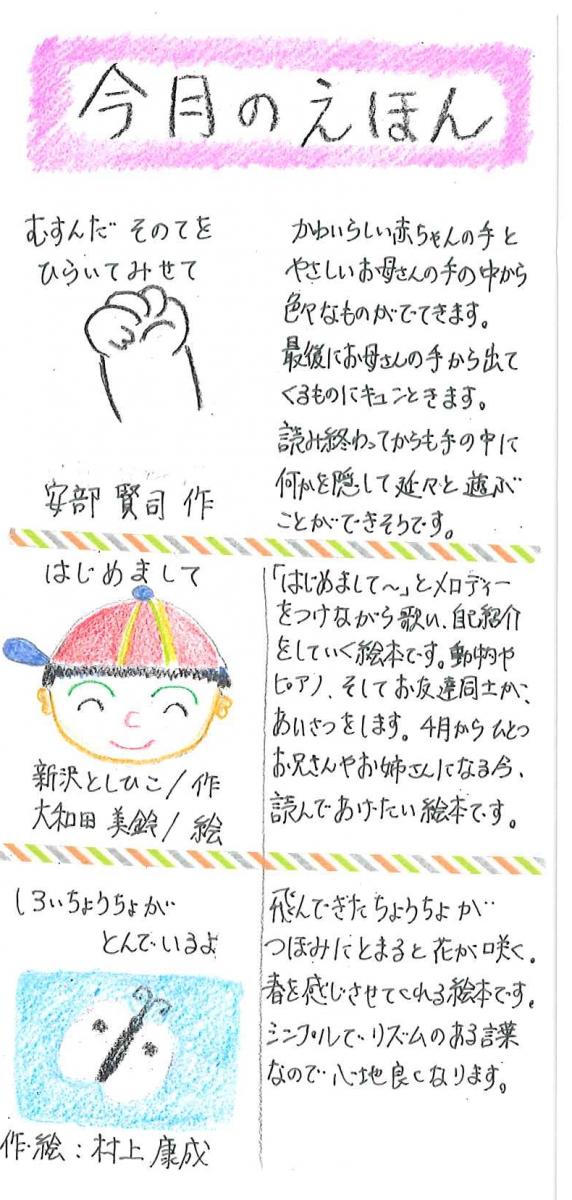 今月のえほん
むすんだ そのてを
ひらいてみせて
安部 賢司 作
かわいらしい赤ちゃんの手と
やさしいお母さんの手の中から
色々なものがでてきます。
最後にお母さんの手から出て
くるものにキュンときます。
読み終わってからも手の中に
何かを隠して延々と遊ぶ
ことができそうです。
はじめまして
新沢としひこ/作
大和田 美鈴/絵
「はじめまして〜」とメロディー
をつけながら歌い、自己紹介
をしていく絵本です。動物や
ピアノ、そしてお友達同士が、
あいさつをします。4月からひとつ
お兄さんやお姉さんになる今、
読んであげたい絵本です。
しろいちょうちょが
とんでいるよ
作・絵:村上 康成
飛んできたちょうちょが
つぼみにとまると花が咲く。
春を感じさせてくれる絵本です。
シンプルで、リズムのある言葉
なので心地良くなります。